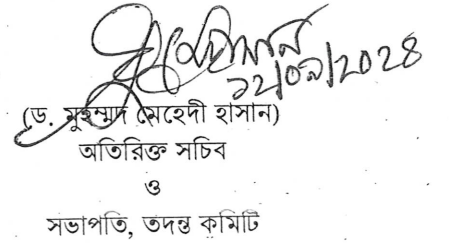 ১২/০৯/২০২৪
(ড. মুহম্মদ মেহেদী হাসান)
অতিরিক্ত সচিব
ও
সভাপতি, তদন্ত কমিটি